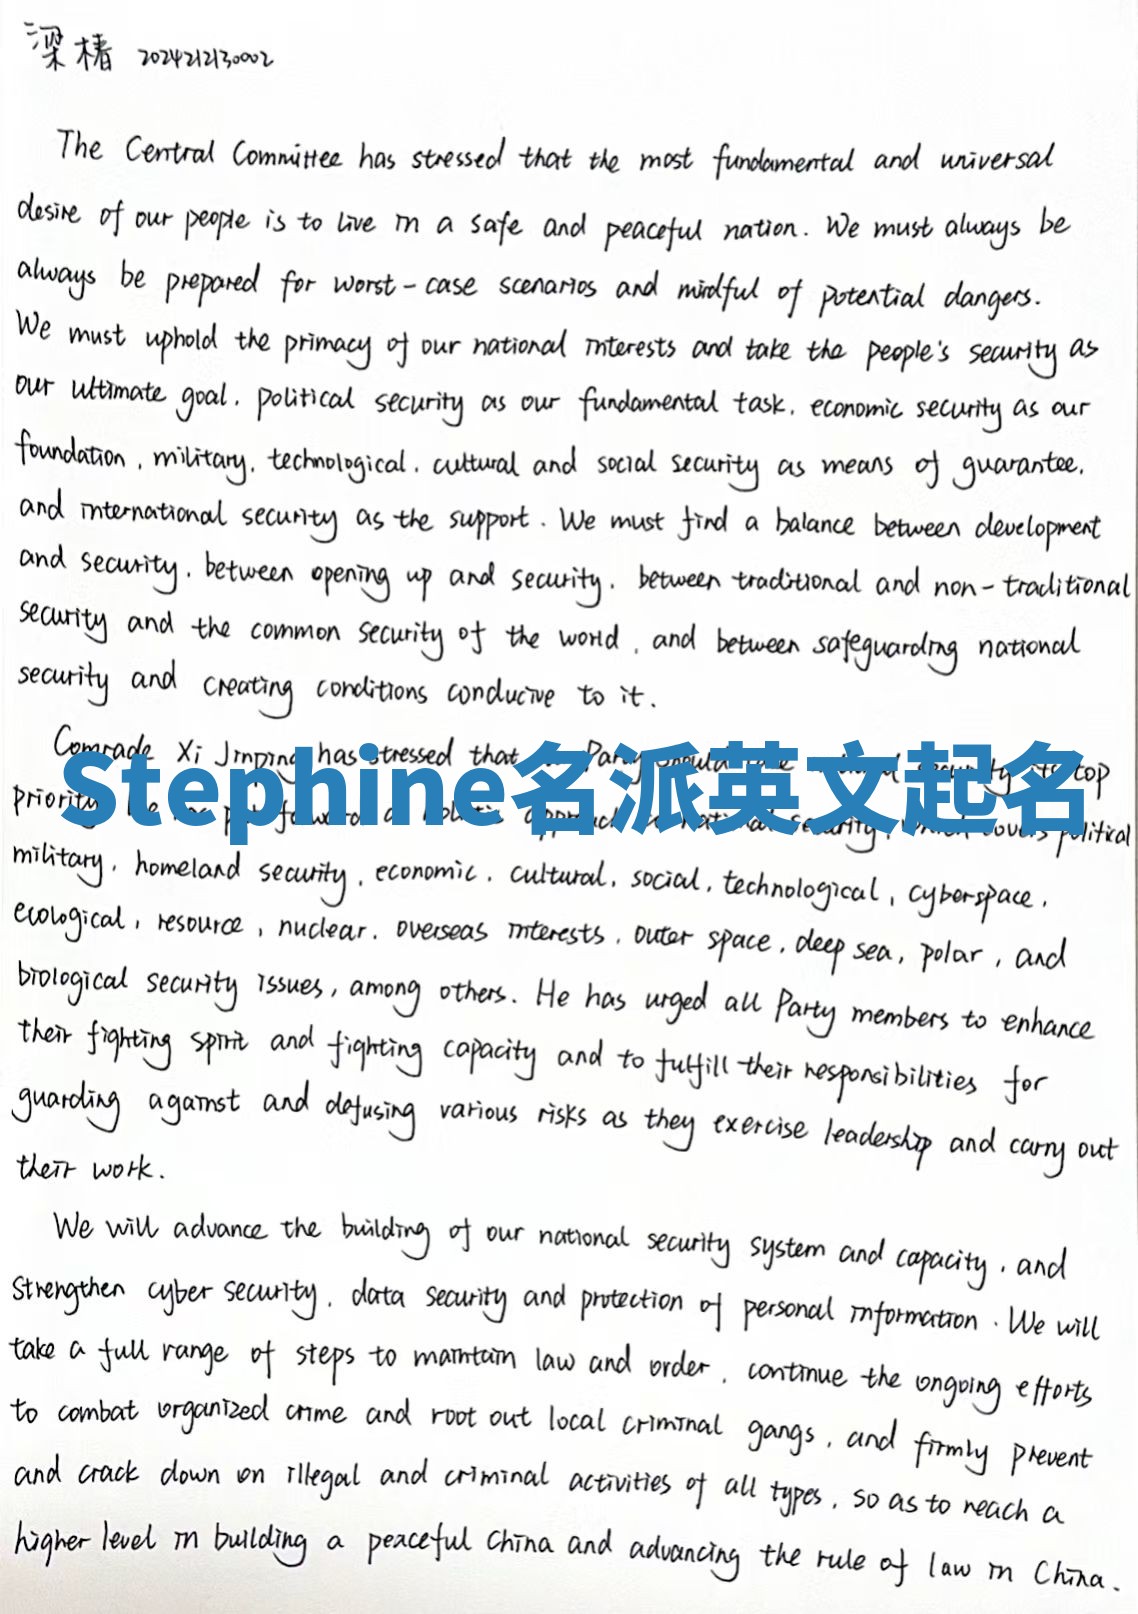 梁椿 2024212130002
The Central Committee has stressed that the most fundamental and universal
desire of our people is to live in a safe and peaceful nation. We must always be
always be prepared for worst-case scenarios and mindful of potential dangers.
We must uphold the primacy of our national interests and take the people's security as
our ultimate goal, political security as our fundamental task, economic security as our
foundation, military, technological, cultural and social security as means of guarantee,
and international security as the support. We must find a balance between development
and security, between opening up and security, between traditional and non-traditional
security and the common security of the world, and between safeguarding national
security and creating conditions conducive to it.
Comrade Xi Jinping has stressed that Party should security its top
Stephine名派英文起名
priority. He forward a holistic approach to national security, which covers political
military, homeland security, economic, cultural, social, technological, cyberspace,
ecological, resource, nuclear, overseas interests, outer space, deep sea, polar, and
biological security issues, among others. He has urged all Party members to enhance
their fighting spirit and fighting capacity and to fulfill their responsibilities for
guarding against and defusing various risks as they exercise leadership and carry out
their work.
We will advance the building of our national security system and capacity, and
strengthen cyber security, data security and protection of personal information. We will
take a full range of steps to maintain law and order, continue the ongoing efforts
to combat organized crime and root out local criminal gangs, and firmly prevent
and crack down on illegal and criminal activities of all types, so as to reach a
higher level in building a peaceful China and advancing the rule of law in China.